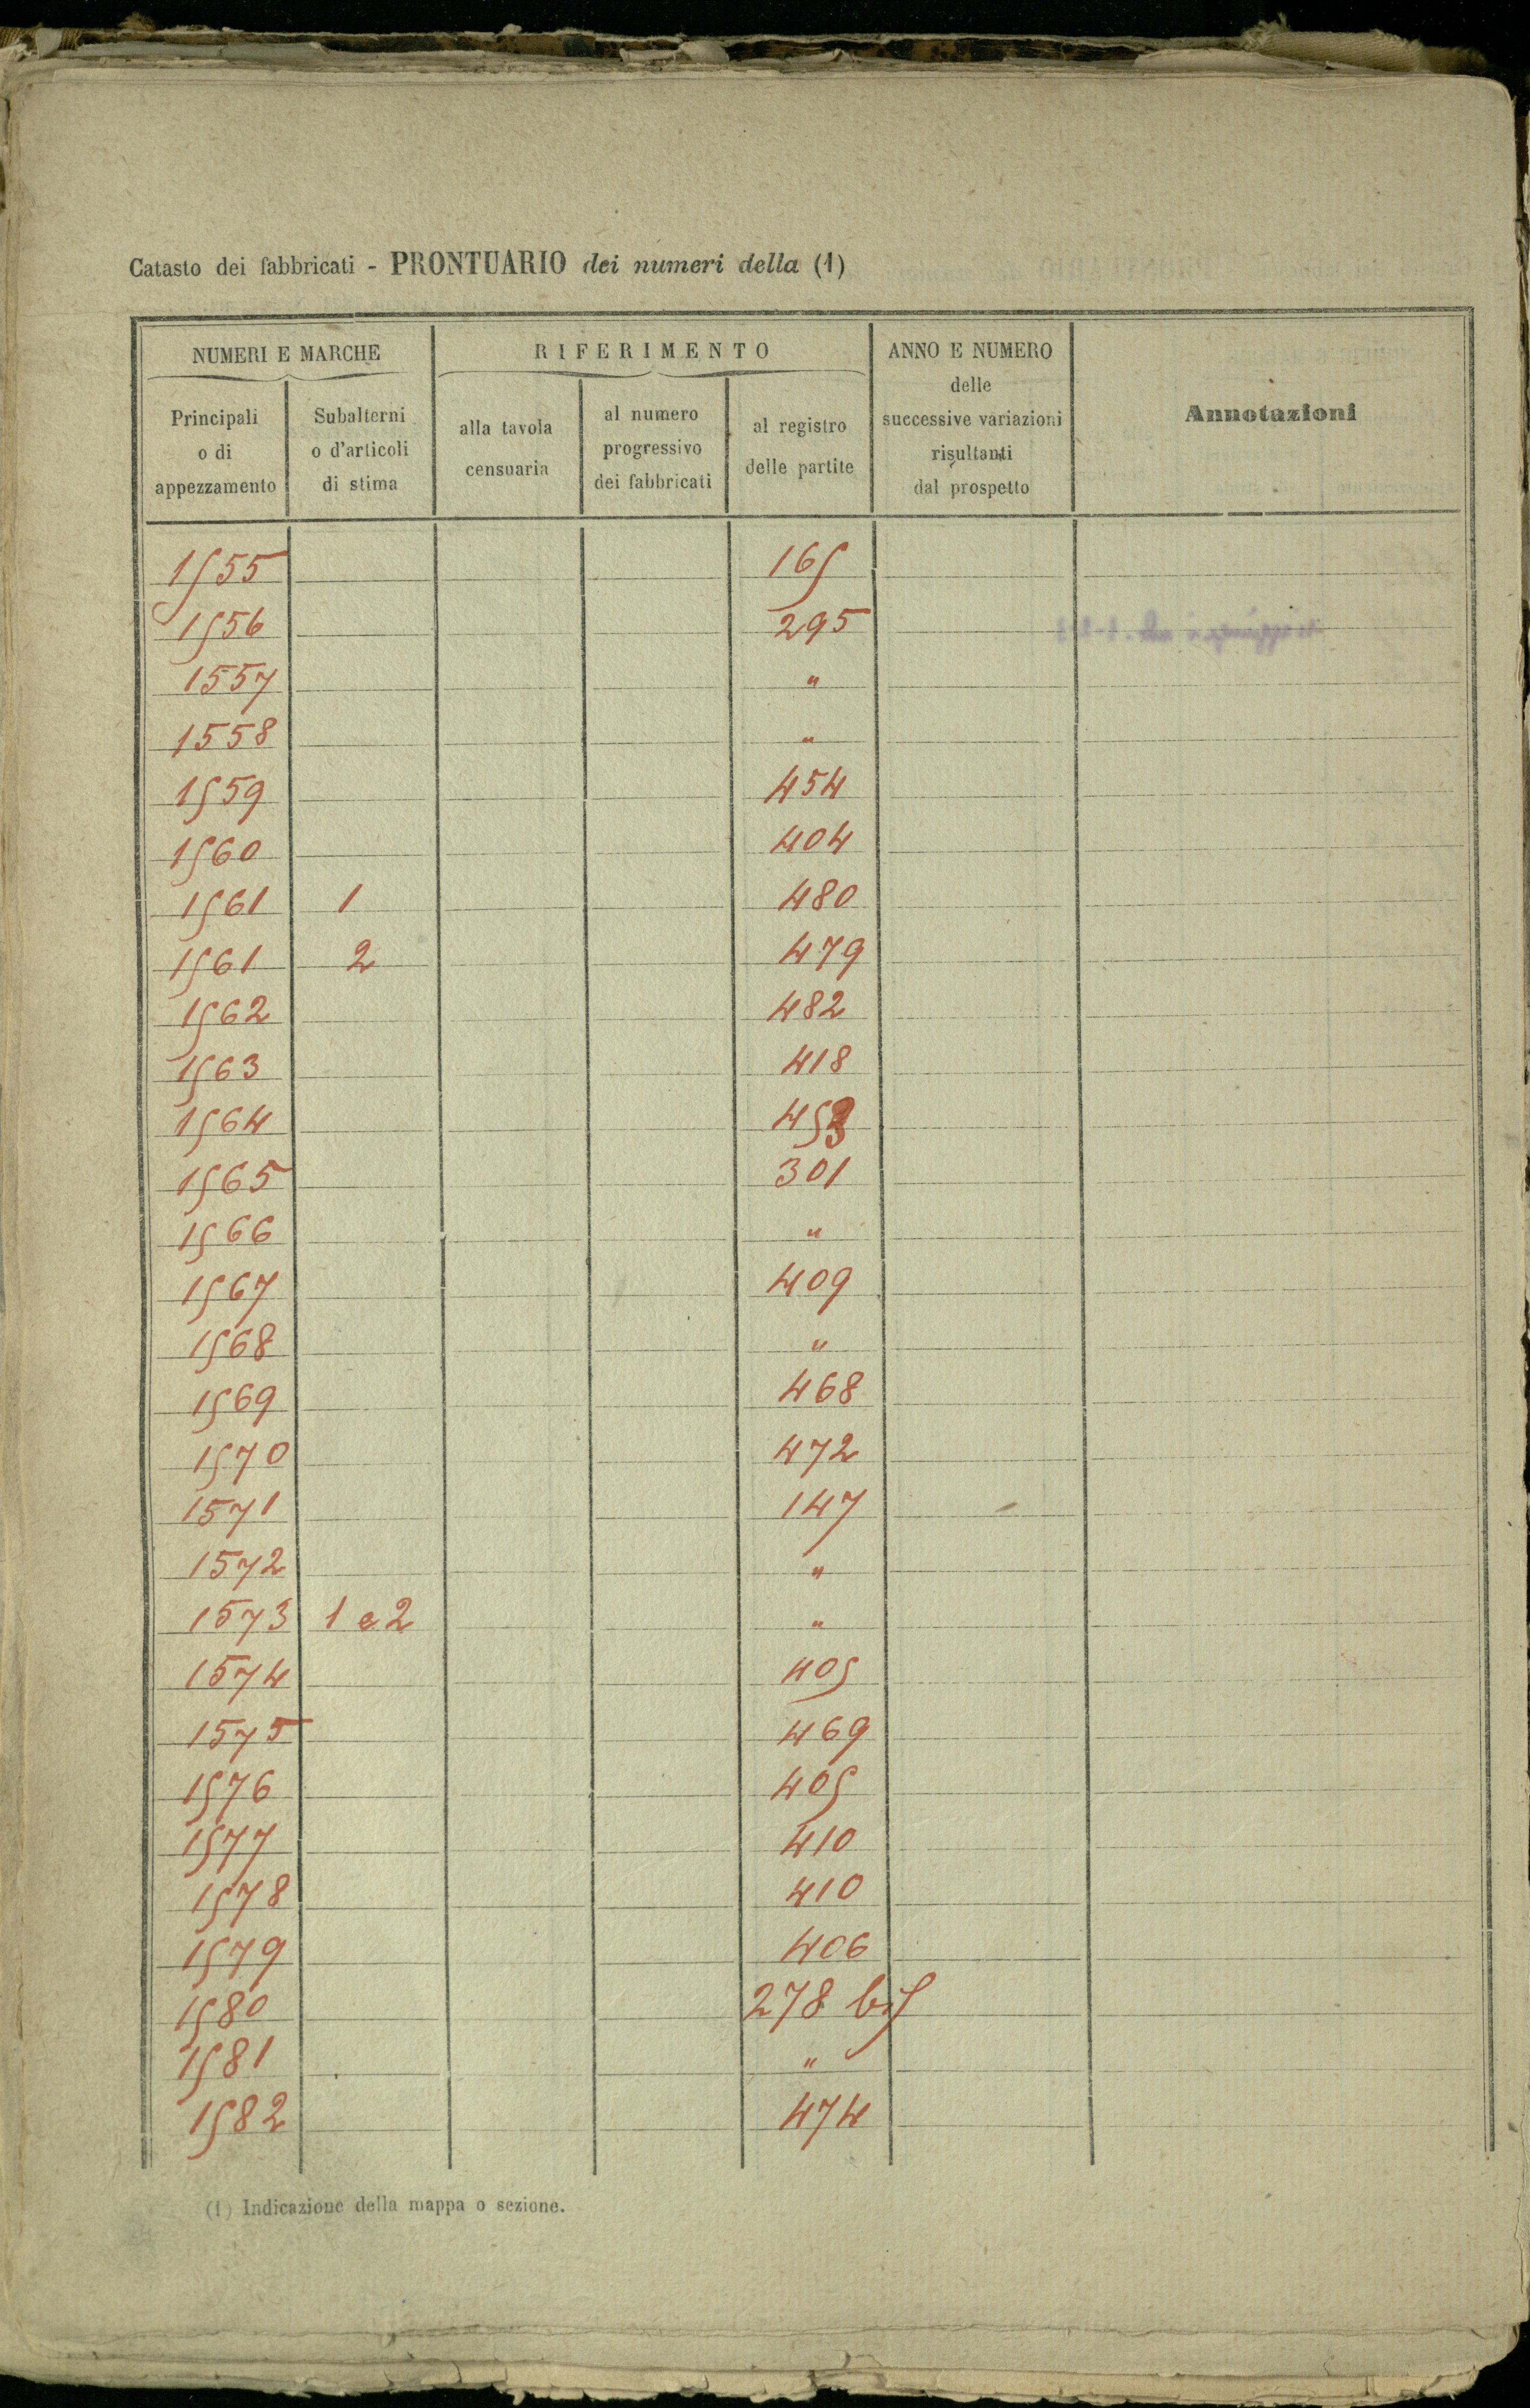 Catasto dei fabbricati - PRONTUARIO dei numeri della (1)
NUMERI E MARCHE RIFERIMENTO ANNO E NUMERO delle successive variazioni risultanti dal prospetto Annotazioni
Principali o di appezzamento Subalterni o d'articoli di stima alla tavola censuaria al numero progressivo dei fabbricati al registro delle partite
1555 165
1556 295
1557 "
1558 "
1559 454
1560 404
1561 1 480
1561 2 479
1562 482
1563 418
1564 453
1565 301
1566 "
1567 409
1568 "
1569 468
1570 472
1571 147
1572 "
1573 1 e 2 "
1574 405
1575 469
1576 405
1577 410
1578 410
1579 406
1580 278 bis
1581 "
1582 474
(1) Indicazione della mappa o sezione.